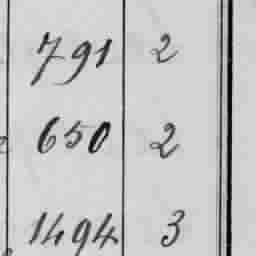 791 2
650 2
1494 3